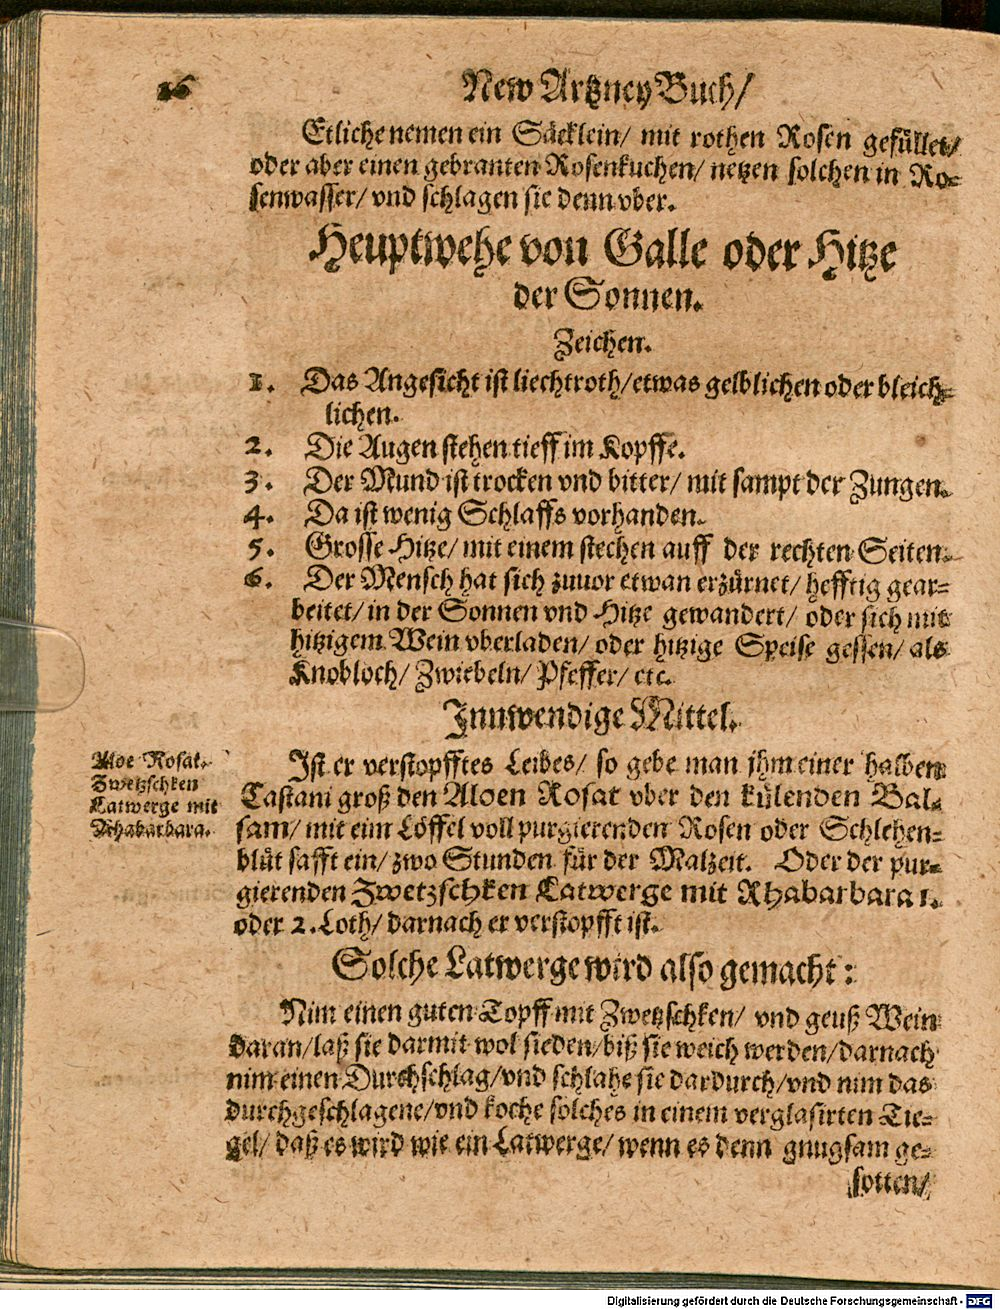 26
New Artzney Buch/
Etliche nemen ein Säcklein/ mit rothen Rosen gefüllet/
oder aber einen gebranten Rosenkuchen/ netzen solchen in Ro-
senwasser/ vnd schlagen sie denn vber.
Heuptwehe von Galle oder Hitze
der Sonnen.
Zeichen.
1. Das Angesicht ist liechtroth/ etwas gelblichen oder bleich-
lichen.
2. Die Augen stehen tieff im Kopffe.
3. Der Mund ist trocken vnd bitter/ mit sampt der Zungen.
4. Da ist wenig Schlaffs vorhanden.
5. Grosse Hitze/ mit einem stechen auff der rechten Seiten.
6. Der Mensch hat sich zuuor etwan erzürnet/ hefftig gear-
beitet/ in der Sonnen vnd Hitze gewandert/ oder sich mit
hitzigem Wein vberladen/ oder hitzige Speise gessen/ als
Knobloch/ Zwiebeln/ Pfeffer/ etc.
Innwendige Mittel.
Aloe Rosat.
Zwetzschken
Latwerge mit
Rhabarbara.
Ist er verstopfftes Leibes/ so gebe man jhm einer halben
Castani groß den Aloen Rosat vber den külenden Bal-
sam/ mit eim Löffel voll purgierenden Rosen oder Schlehen-
blüt safft ein/ zwo Stunden für der Malzeit. Oder der pur-
gierenden Zwetzschken Latwerge mit Rhabarbara 1.
oder 2. Loth/ darnach er verstopfft ist.
Solche Latwerge wird also gemacht:
Nim einen guten Topff mit Zwetzschken/ vnd geuß Wein
daran/ laß sie darmit wol sieden/ biß sie weich werden/ darnach
nim einen Durchschlag/ vnd schlahe sie dardurch/ vnd nim das
durchgeschlagene/ vnd koche solches in einem verglasirten Tie-
gel/ daß es wird wie ein Latwerge/ wenn es denn gnugsam ge-
sotten/
Digitalisierung gefördert durch die Deutsche Forschungsgemeinschaft - DFG